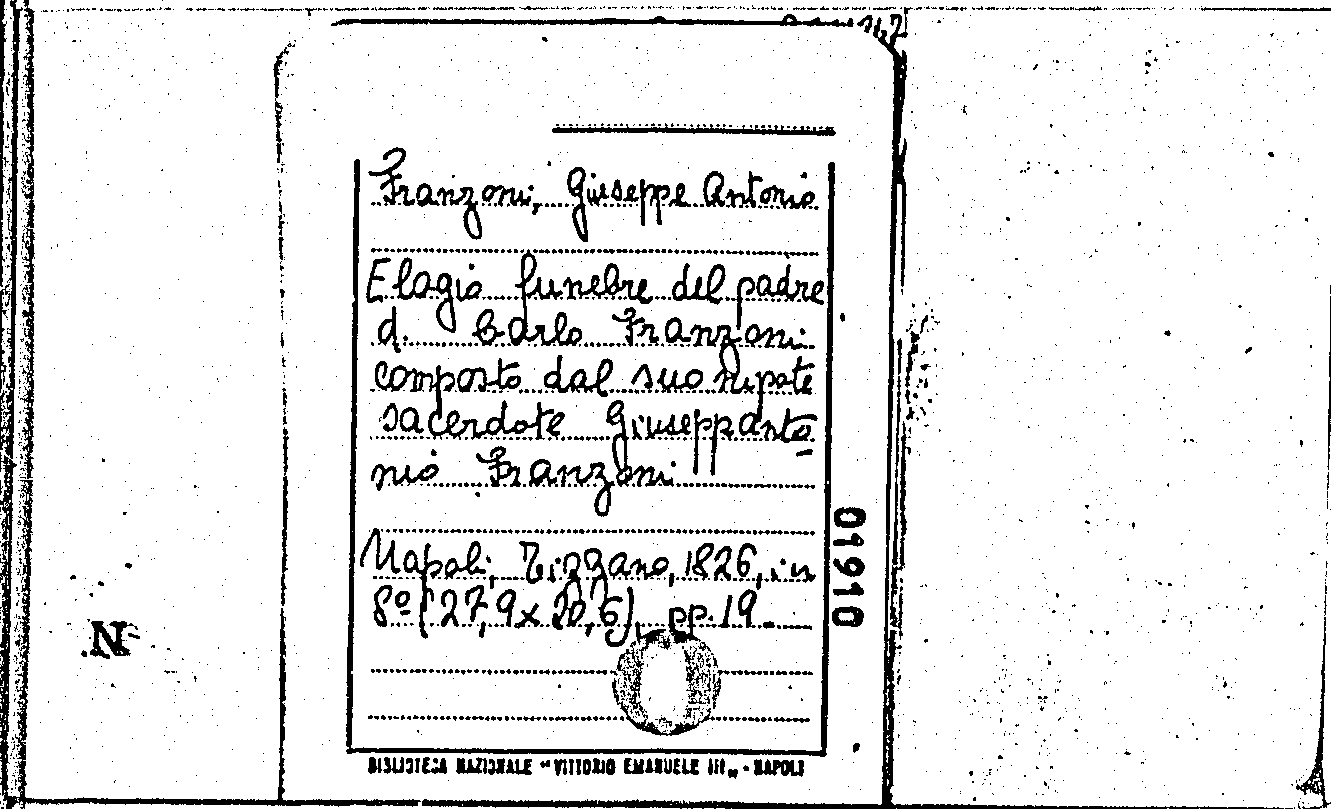 Franzoni, Giuseppe Antonio
Elogio funebre del padre
d. Carlo Franzoni
composto dal suo nipote
sacerdote Giuseppanto-
nio Franzoni
Napoli, Zirgano, 1826, in
8º (27,9 x 20,6), pp. 19.
01910
N.
BIBLIOTECA NAZIONALE "VITTORIO EMANUELE III" - NAPOLI